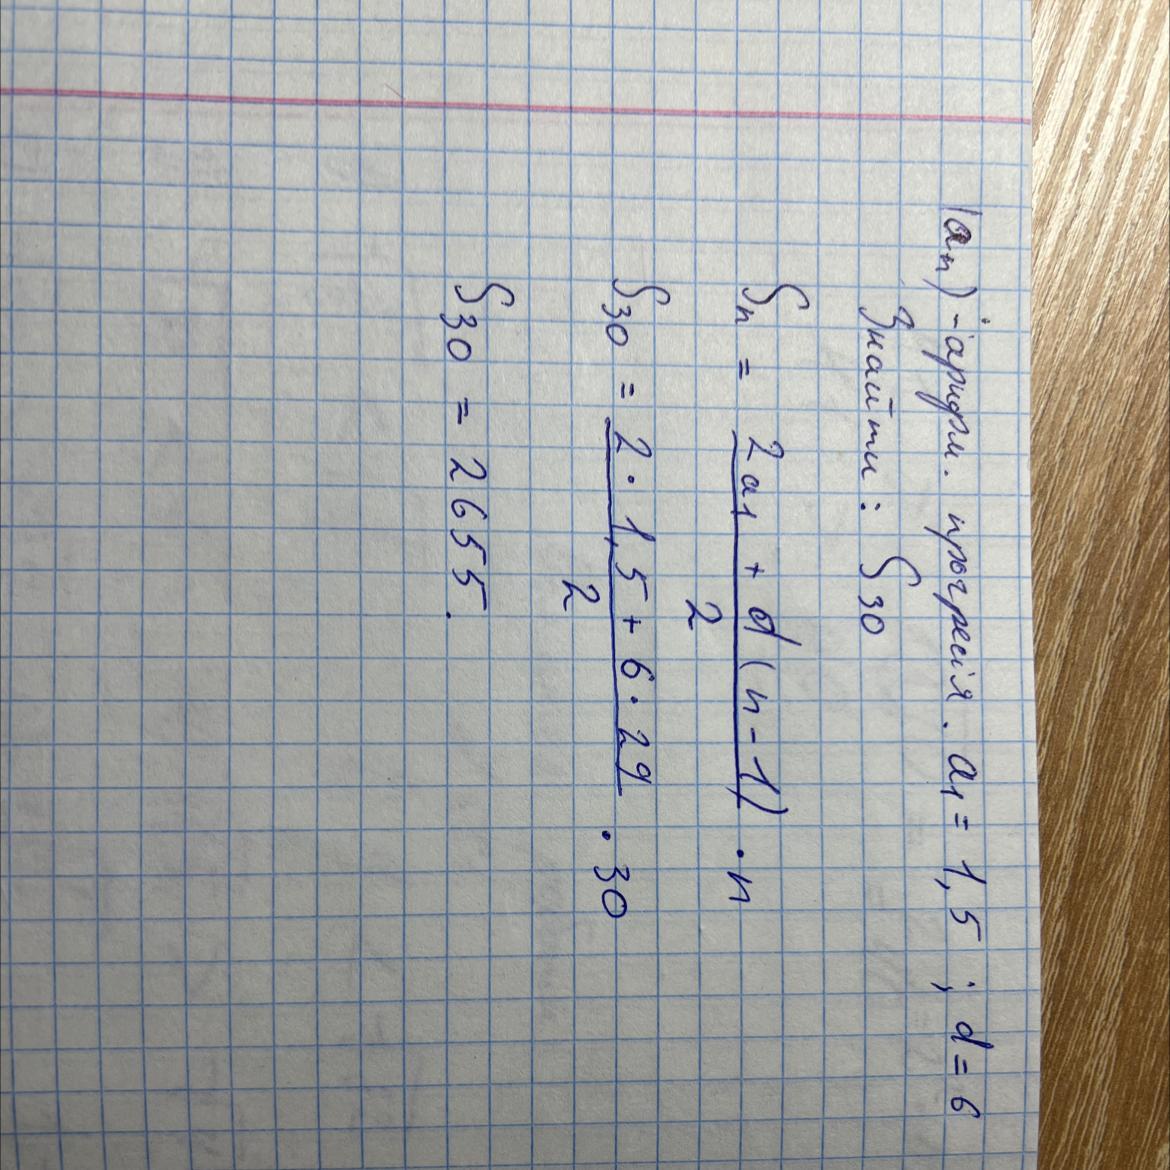 (aₙ) - арифм. прогресія. a₁ = 1,5 ; d = 6
Знайти: S₃₀
Sₙ = 2a₁ + d(n-1) / 2 · n
S₃₀ = 2 · 1,5 + 6 · 29 / 2 · 30
S₃₀ = 2655.